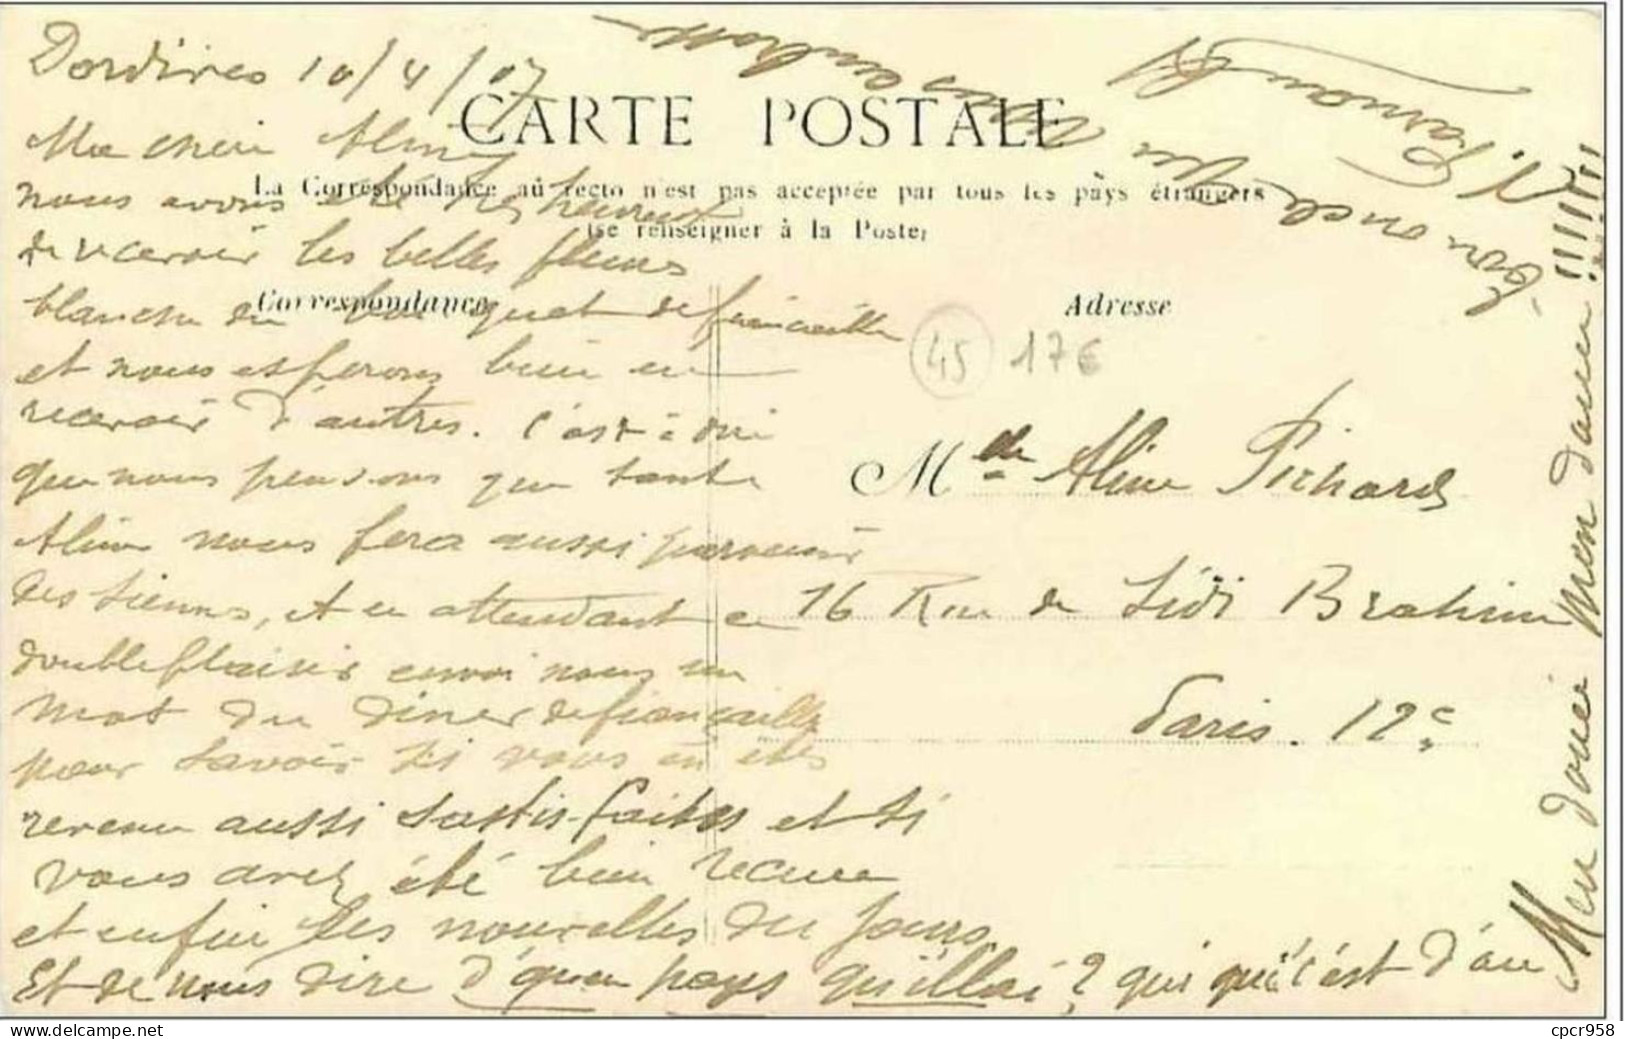 Dordives 10/4/07
CARTE POSTALE
La Correspondance au recto n'est pas acceptée par tous les pays étrangers
(se renseigner à la Poste)
Correspondance
Adresse
Ma chère Aline
nous avons été très heureux
de recevoir les belles fleurs
blanche du bouquet de fiancaille
et nous esperons bien en
recevoir d'autres. C'est à dire
que nous pensons que tante
Aline nous fera aussi parvenir
des siennes, et en attendant ce
double plaisir envoi nous un
mot du diner de fiancaille
pour savoir si vous en êtes
revenu aussi sastisfaites et si
vous avez été bien recue
et enfin les nouvelles du jours
Et de nous dire d'quen pays qu'illai? qui qu'c'est d'au
Men douci men damen !!!!!!
Ton oncle
45 17€
Mde Aline Pichard
16 Rue de Sidi Brahim
Paris. 12e
cpcr958